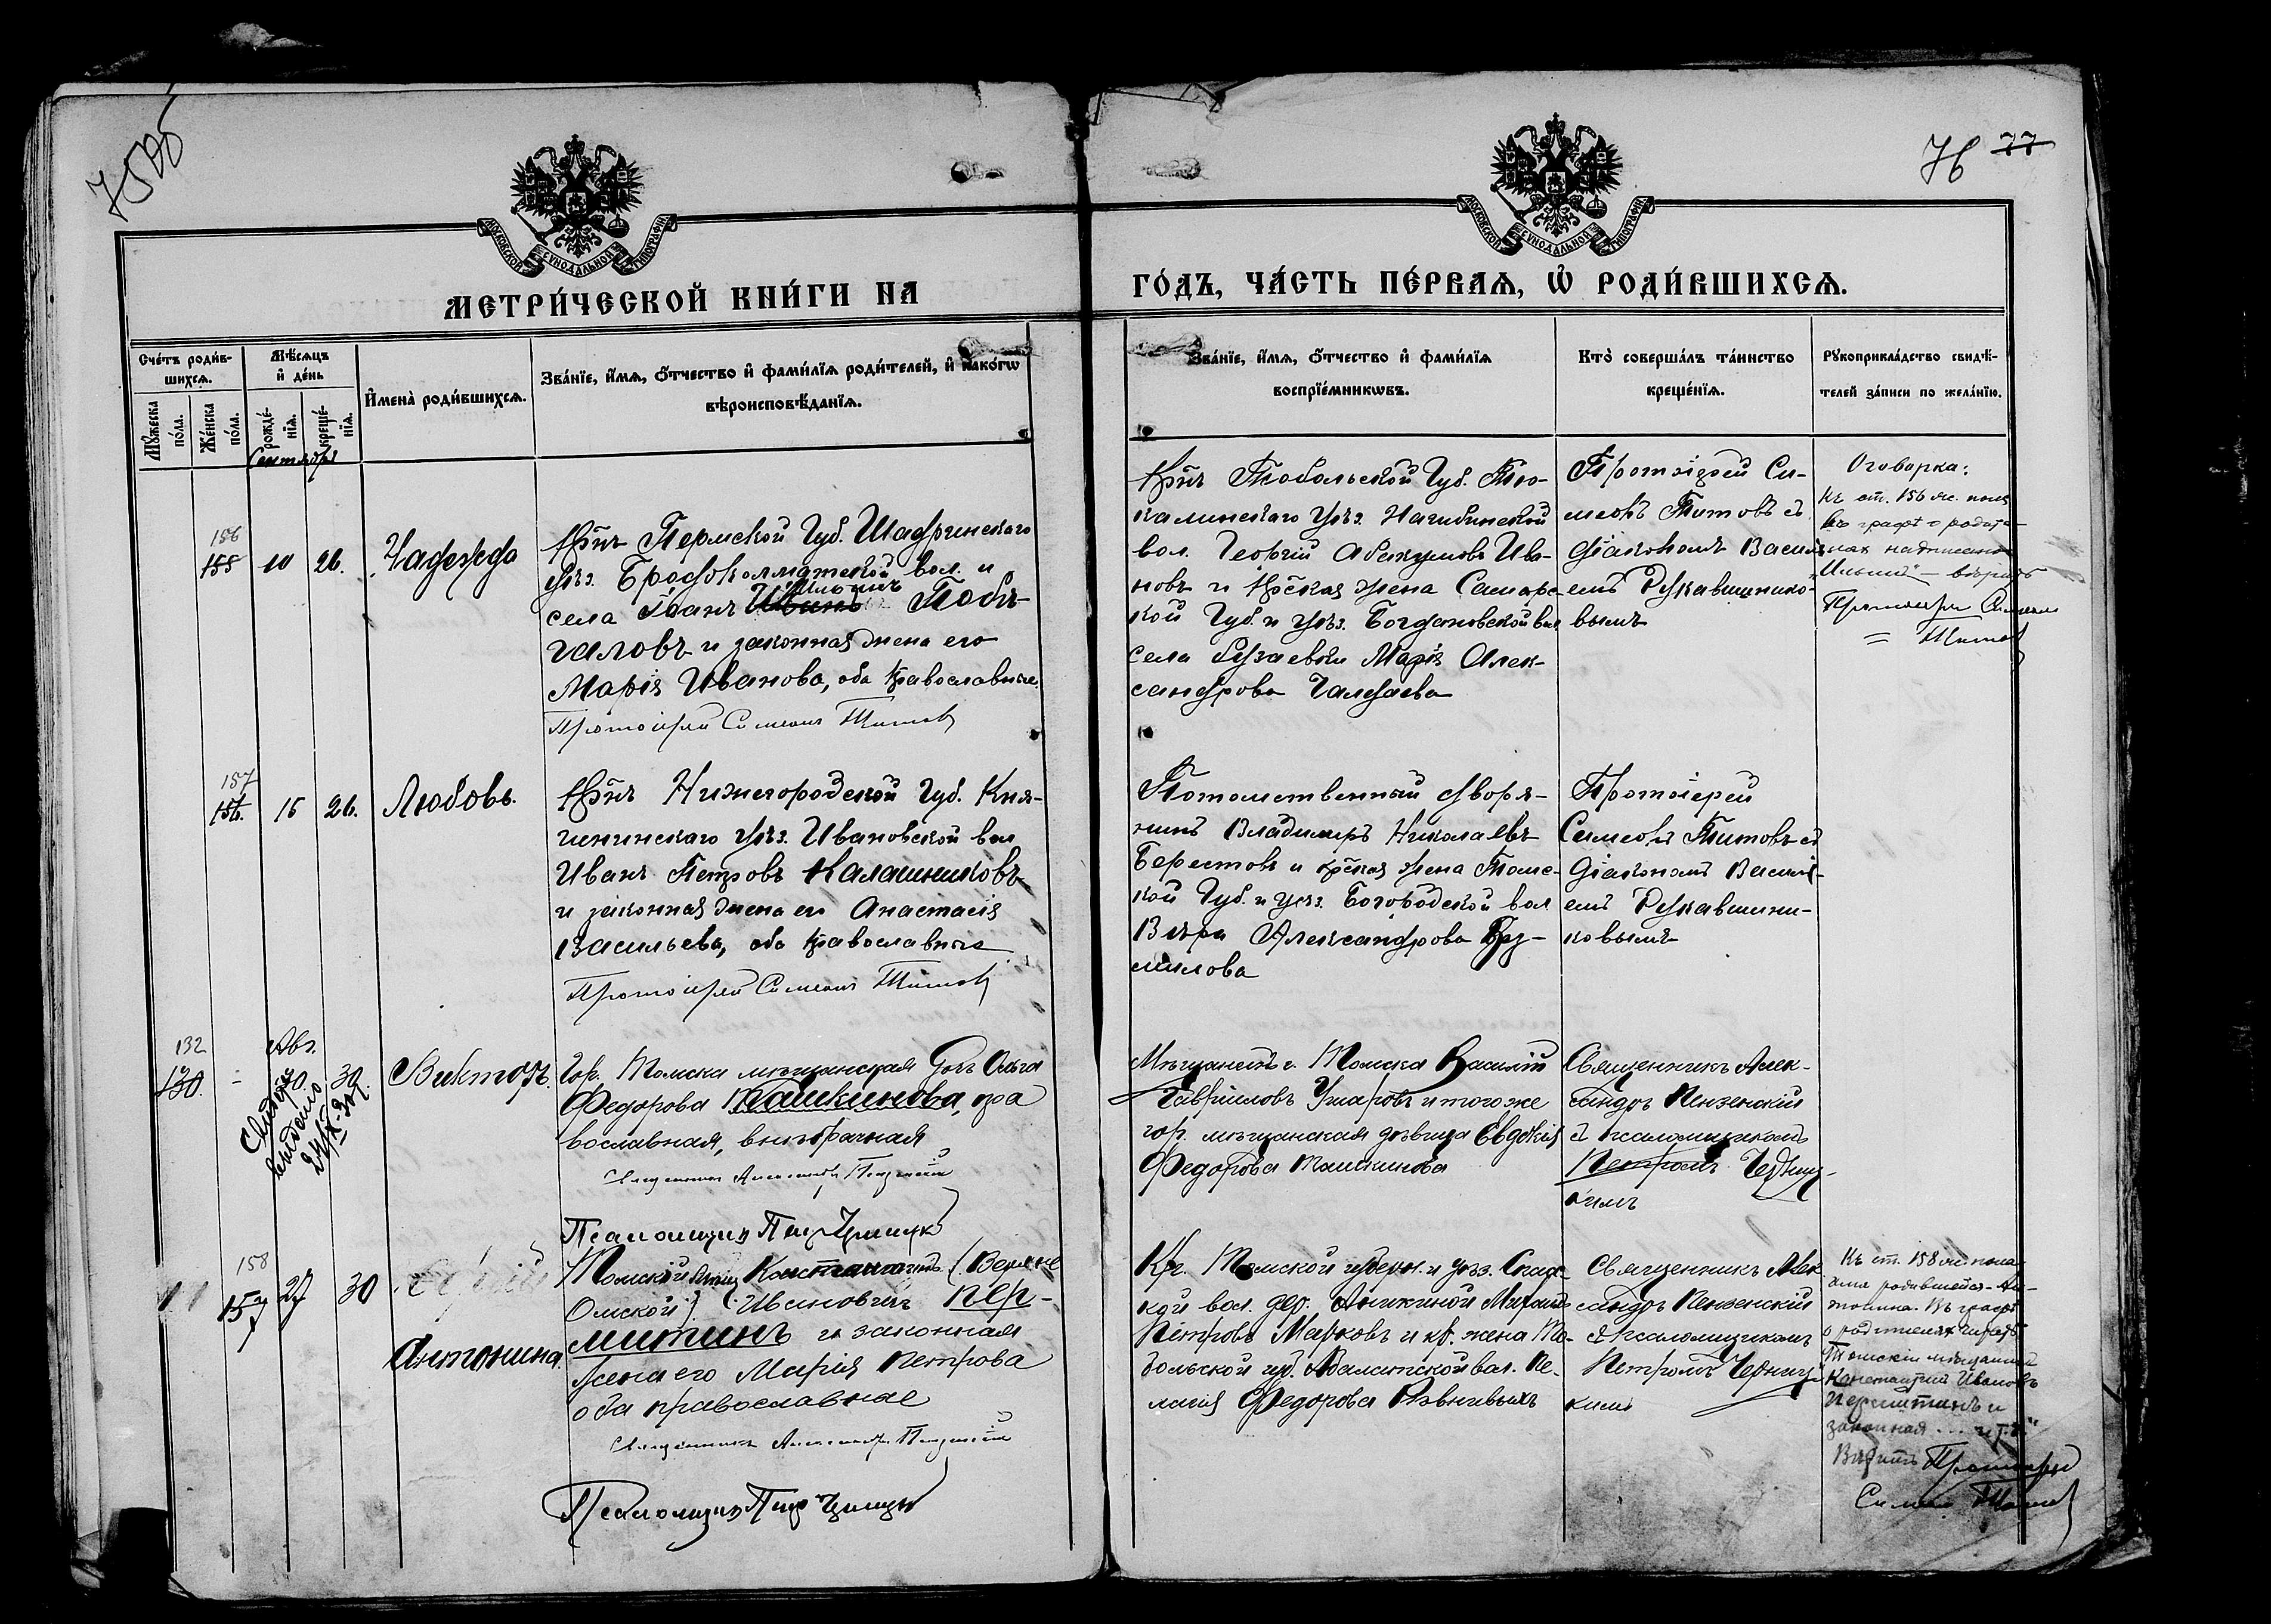 75об
76 77
МОСКОВСКОЙ СѴНОДАЛЬНОЙ ТИПОГРАФІИ
МОСКОВСКОЙ СѴНОДАЛЬНОЙ ТИПОГРАФІИ
МЕТРИ́ЧЕСКОЙ КНИ́ГИ НА
ГО́ДЪ, ЧА́СТЬ ПЕ́РВАѦ, Ѡ҆ РОДИ́ВШИХСѦ.
Сче́тъ роди́в-
шихсѧ.
Мꙋ́жеска по́ла.
Же́нска по́ла.
Мѣ́сѧцъ и҆ де́нь
рожде́-
нїѧ.
креще́-
нїѧ.
И҆мена̀ роди́вшихсѧ.
Зва́нїе, и҆́мѧ, ѻ҆́тчество и҆ фами́лїѧ роди́телей, и҆ како́гѡ
вѣроисповѣ́данїѧ.
Зва́нїе, и҆́мѧ, ѻ҆́тчество и҆ фами́лїѧ
воспрїе́мникѡвъ.
Кто̀ соверша́лъ та́инство
креще́нїѧ.
Рꙋкоприкла́дство свидѣ́-
телей за́писи по жела́нїю.
Сентября
156
155 10 26. Надежда
Крнъ Пермской Губ. Шадринскаго
уѣз. Бродоколматской вол. и
села Іоанъ Ильинъ Побѣ-
галовъ и законная жена его
Марія Иванова, оба православные.
Протоіерей Симеонъ Титовъ
Крнъ Тобольской Губ. Тю-
калинскаго уѣз. Нагибинской
вол. Георгій Абакумовъ Ива-
новъ и крская жена Самарс-
кой Губ. и уѣз. Богдановской вол
села Марія Алек-
сандрова
Протоіерей Си-
меонъ Титовъ съ
діакономъ Васил-
емъ Рукавишнико-
вымъ
Оговорка:
Къ ст. 156 же. пола
въ графѣ о родите-
ляхъ надписано
"Ильинъ" – вѣрить
Протоіерей Симеонъ
Титовъ
157
156. 15 26. Любовь.
Крнъ Нижегородской Губ. Кня-
гининскаго уѣз. Ивановской вол
Иванъ Петровъ Калашниковъ
и законная жена его Анастасія
Васильева, оба православные
Протоіерей Симеонъ Титовъ
Потомственный дворя-
нинъ Владимиръ Николаевъ
Берестовъ и крская жена Томс-
кой Губ. и уѣз. Богородской вол
Вѣра Александрова
милова
Протоіерей
Симеонъ Титовъ съ
діакономъ Василі-
емъ Рукавишни-
ковымъ
132
130. - Авг.
30. 30. Викторъ.
Свидѣт
выдано
Гор. Томска мѣщанская дочь Ольга
Федорова Машкинова, пра
вославная, внѣбрачная
Священникъ Александръ Пензенскій
Псаломщикъ Петръ Черницкій
Мѣщанинъ г. Томска Василій
Гавриловъ Умаровъ и того же
гор. мѣщанская дѣвица Евдокія
Федорова Машкинова
Священникъ Алек-
сандръ Пензенскій
съ псаломщикомъ
Петромъ Черниц-
кимъ
158
157 27 30
Антонина
Томскій мѣщ Константинъ (Верхне
Омской) (Ивановичъ Пер-
митинъ и законная
жена его Марія Петрова
оба православные
Священникъ Александръ Пензенскій
Псаломщикъ Петръ Черницкій
Кр. Томской губерн. и уѣз. Спас-
кой вол. дер. Аникиной Михаилъ
Петровъ Марковъ и кр. жена То-
больской губ. Абалакской вол. Пе-
лагія Федорова
Священникъ Алек
сандръ Пензенскій
съ псаломщикомъ
Петромъ Черниц-
кимъ
Къ ст. 158 же. пола
имя родившейся – Ан-
тонина. Въ графѣ
о родителяхъ читать
"Томскій мѣщанинъ
Константинъ Ивановъ
Пермитинъ и
законная ... и т.д."
Вѣрить Протоіерей
Симеонъ Титовъ